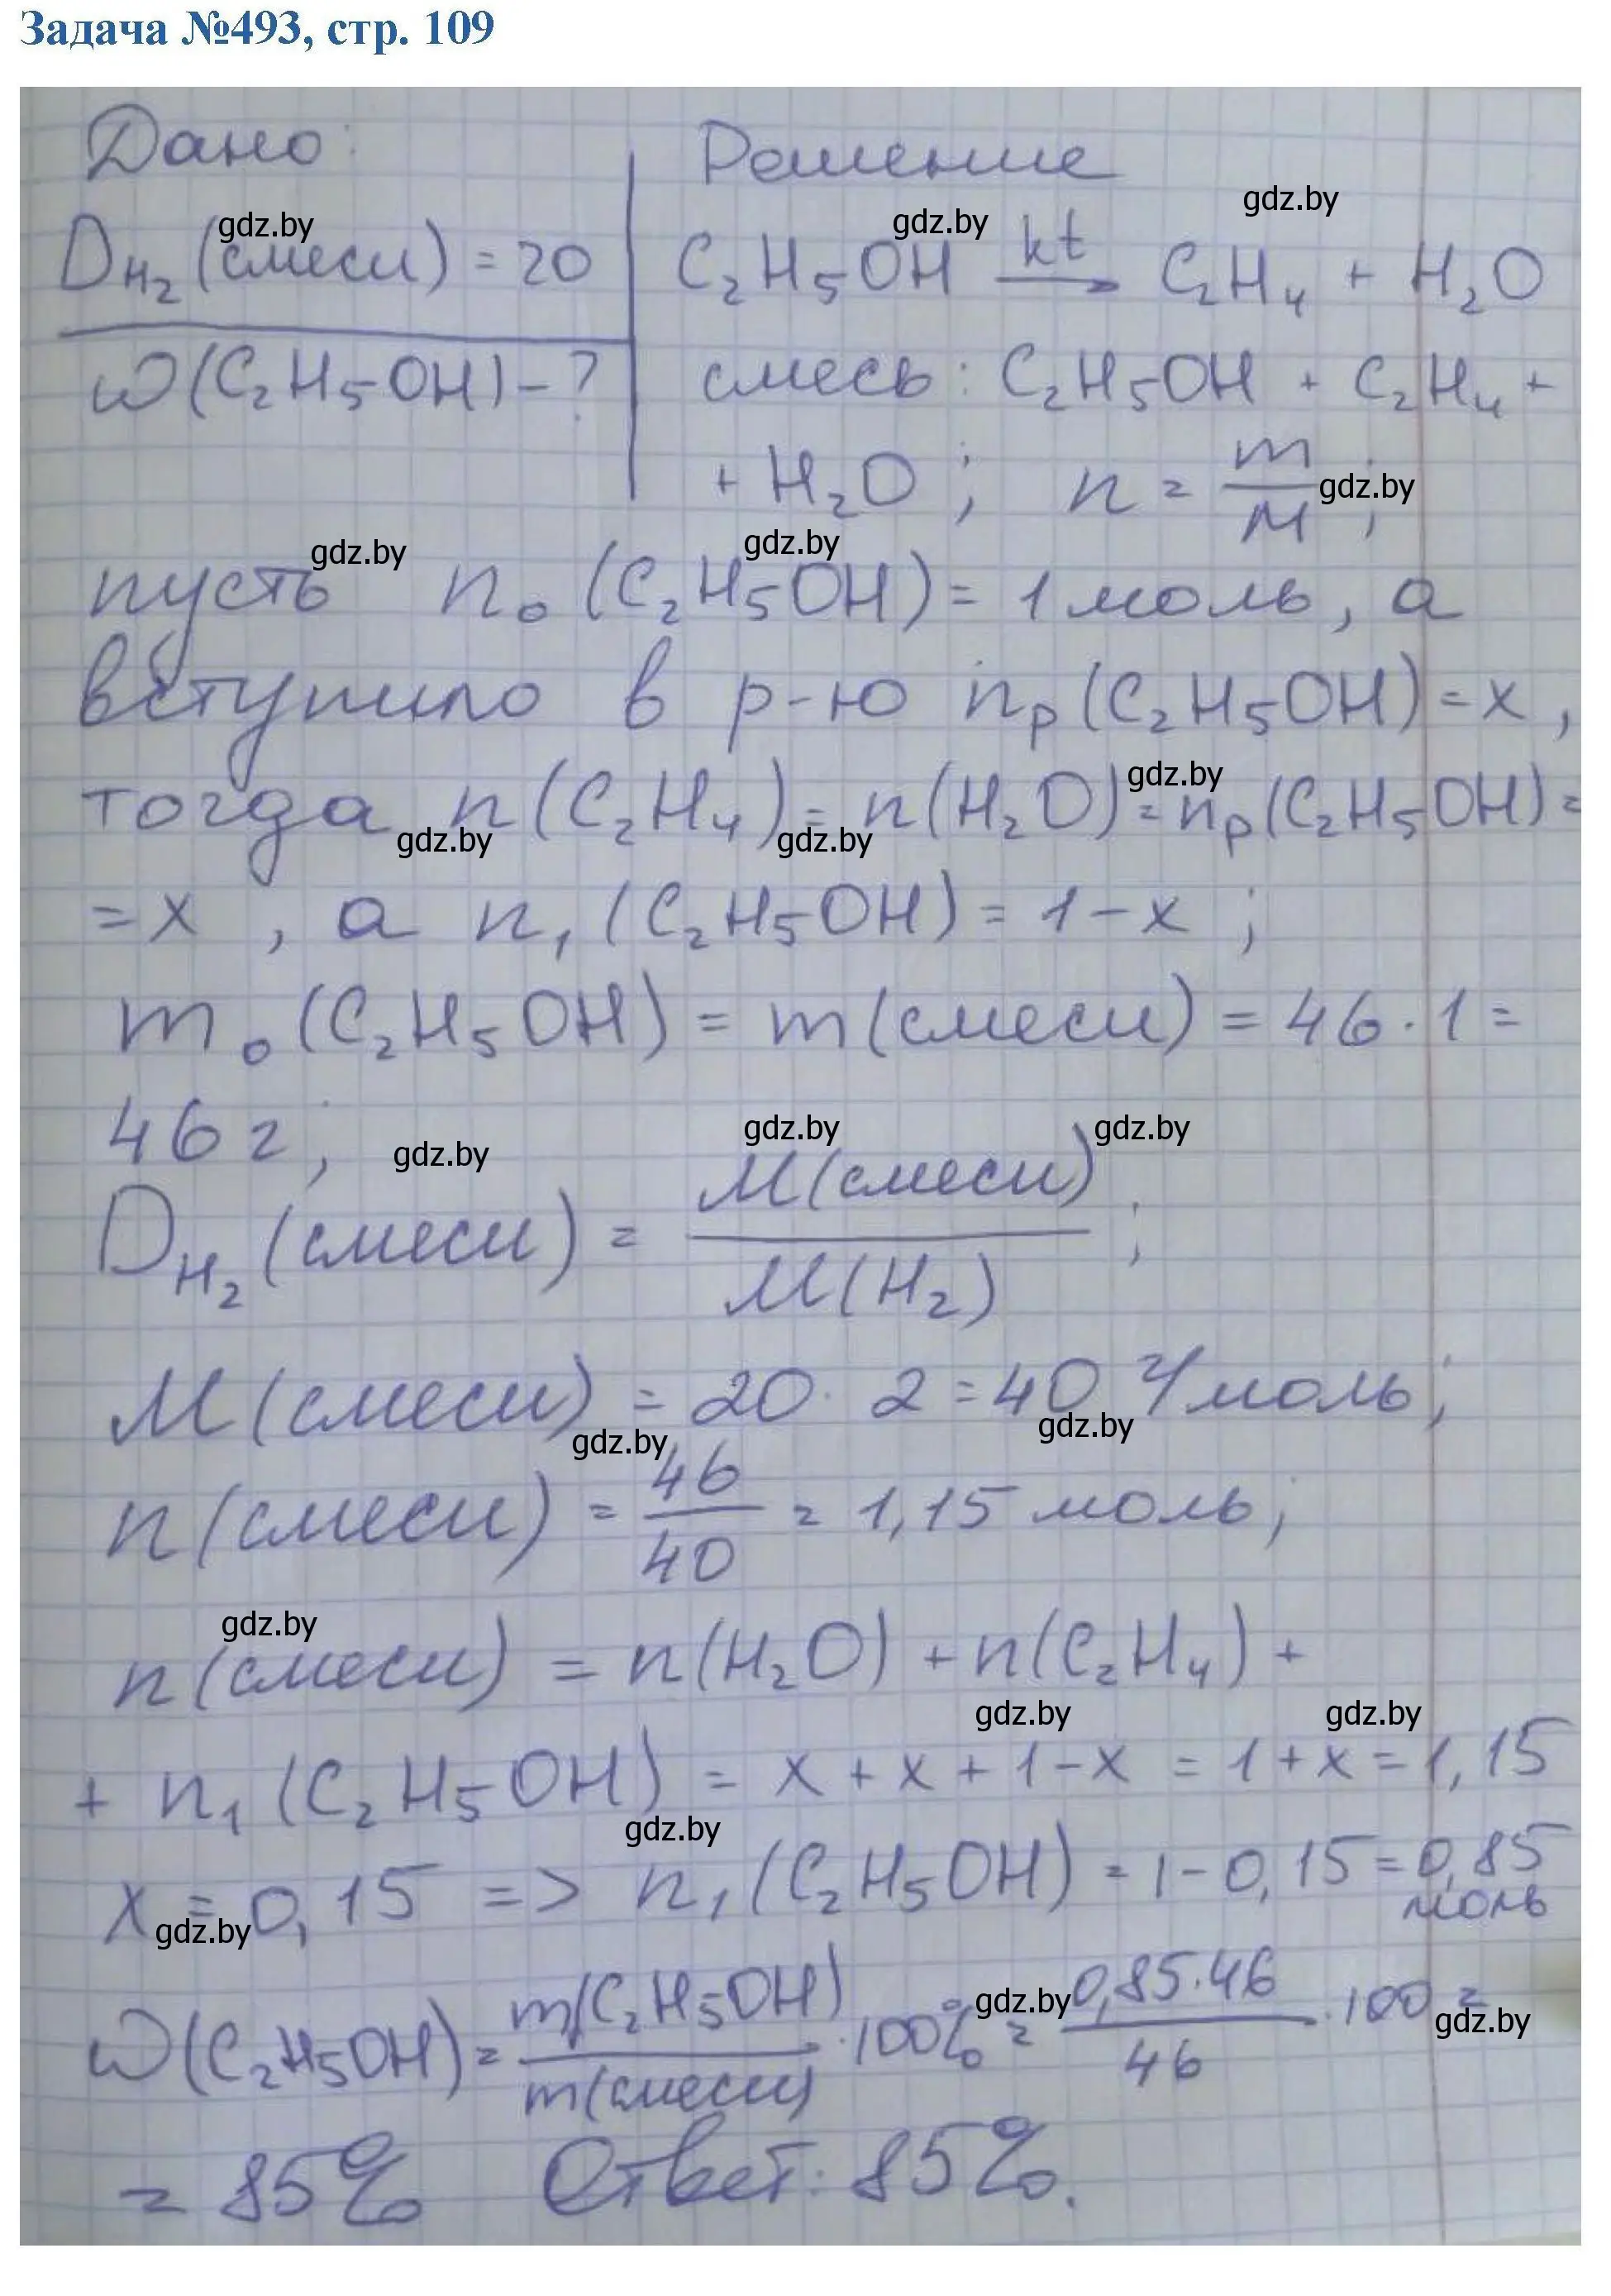 Задача №493, стр. 109
Дано: Решение
D_H₂ (смеси) = 20 C₂H₅OH kt→ C₂H₄ + H₂O
ω(C₂H₅OH) - ? смесь: C₂H₅OH + C₂H₄ +
+ H₂O; n = m/M;
пусть n₀ (C₂H₅OH) = 1 моль, а
вступило в р-ю nₚ(C₂H₅OH) = x,
тогда n(C₂H₄) = n(H₂O) = nₚ(C₂H₅OH) =
= x, а n₁(C₂H₅OH) = 1 - x;
m₀(C₂H₅OH) = m(смеси) = 46 · 1 =
46 г;
D_H₂ (смеси) = M(смеси)/M(H₂);
M(смеси) = 20 · 2 = 40 г/моль;
n(смеси) = 46/40 = 1,15 моль;
n(смеси) = n(H₂O) + n(C₂H₄) +
+ n₁(C₂H₅OH) = x + x + 1 - x = 1 + x = 1,15
x = 0,15 => n₁(C₂H₅OH) = 1 - 0,15 = 0,85 моль
ω(C₂H₅OH) = m(C₂H₅OH)/m(смеси) · 100% = 0,85·46/46 · 100 =
= 85% Ответ: 85%.
gdz.by